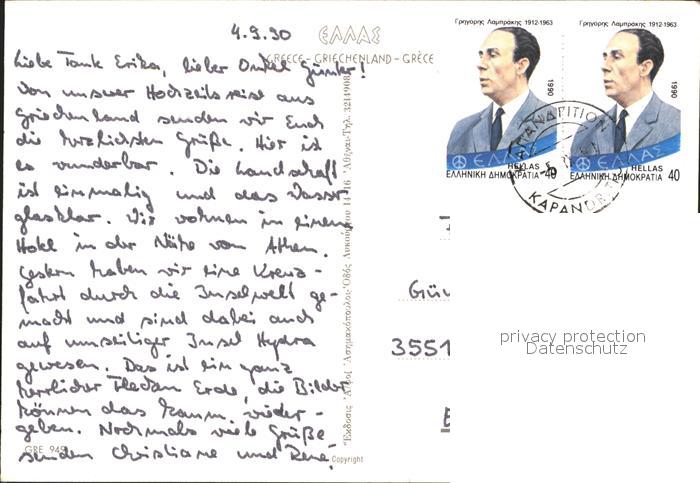 4.9.90
ΕΛΛΑΣ
GREECE - GRIECHENLAND - GRÈCE
Liebe Tante Erika, lieber Onkel Günter!
Von unserer Hochzeitsreise aus
Griechenland senden wir Euch
die herzlichsten Grüße. Hier ist
es wunderbar. Die Landschaft
ist einmalig und das Wasser
glasklar. Wir wohnen in einem
Hotel in der Nähe von Athen.
Gestern haben wir eine Kreuz-
fahrt durch die Inselwelt ge-
macht und sind dabei auch
auf umseitiger Insel Hydra
gewesen. Das ist ein ganz
herrlicher Flecken Erde, die Bilder
können das kaum wieder-
geben. Nochmals viele Grüße
senden Christiane und René.
GRE 949
Copyright
Γρηγόρης Λαμπράκης 1912-1963
1990
ΕΛΛΑΣ
HELLAS
ΕΛΛΗΝΙΚΗ ΔΗΜΟΚΡΑΤΙΑ 40
Γρηγόρης Λαμπράκης 1912-1963
1990
ΕΛΛΑΣ
HELLAS
ΕΛΛΗΝΙΚΗ ΔΗΜΟΚΡΑΤΙΑ 40
3551
privacy protection
Datenschutz